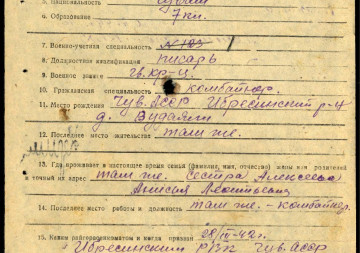 5. Национальность чуваш
6. Образование 7 кл.
7. Военно-учетная специальность № 123
8. Должностная квалификация писарь
9. Военное звание гв. кр-ц
10. Гражданская специальность комбайнер.
11. Место рождения Чув. АССР Ибресинский р-н
д.
12. Последнее место жительства там же.
13. Где проживает в настоящее время семья (фамилия, имя, отчество) жены или родителей
и точный их адрес там же. Сестра Алексеева
Анисия Леонтьевна
14. Последнее место работы и должность там же - комбайнер.
15. Каким райгорвоенкоматом и когда призван 28/III-42г.
Ибресинским РВК Чув. АССР